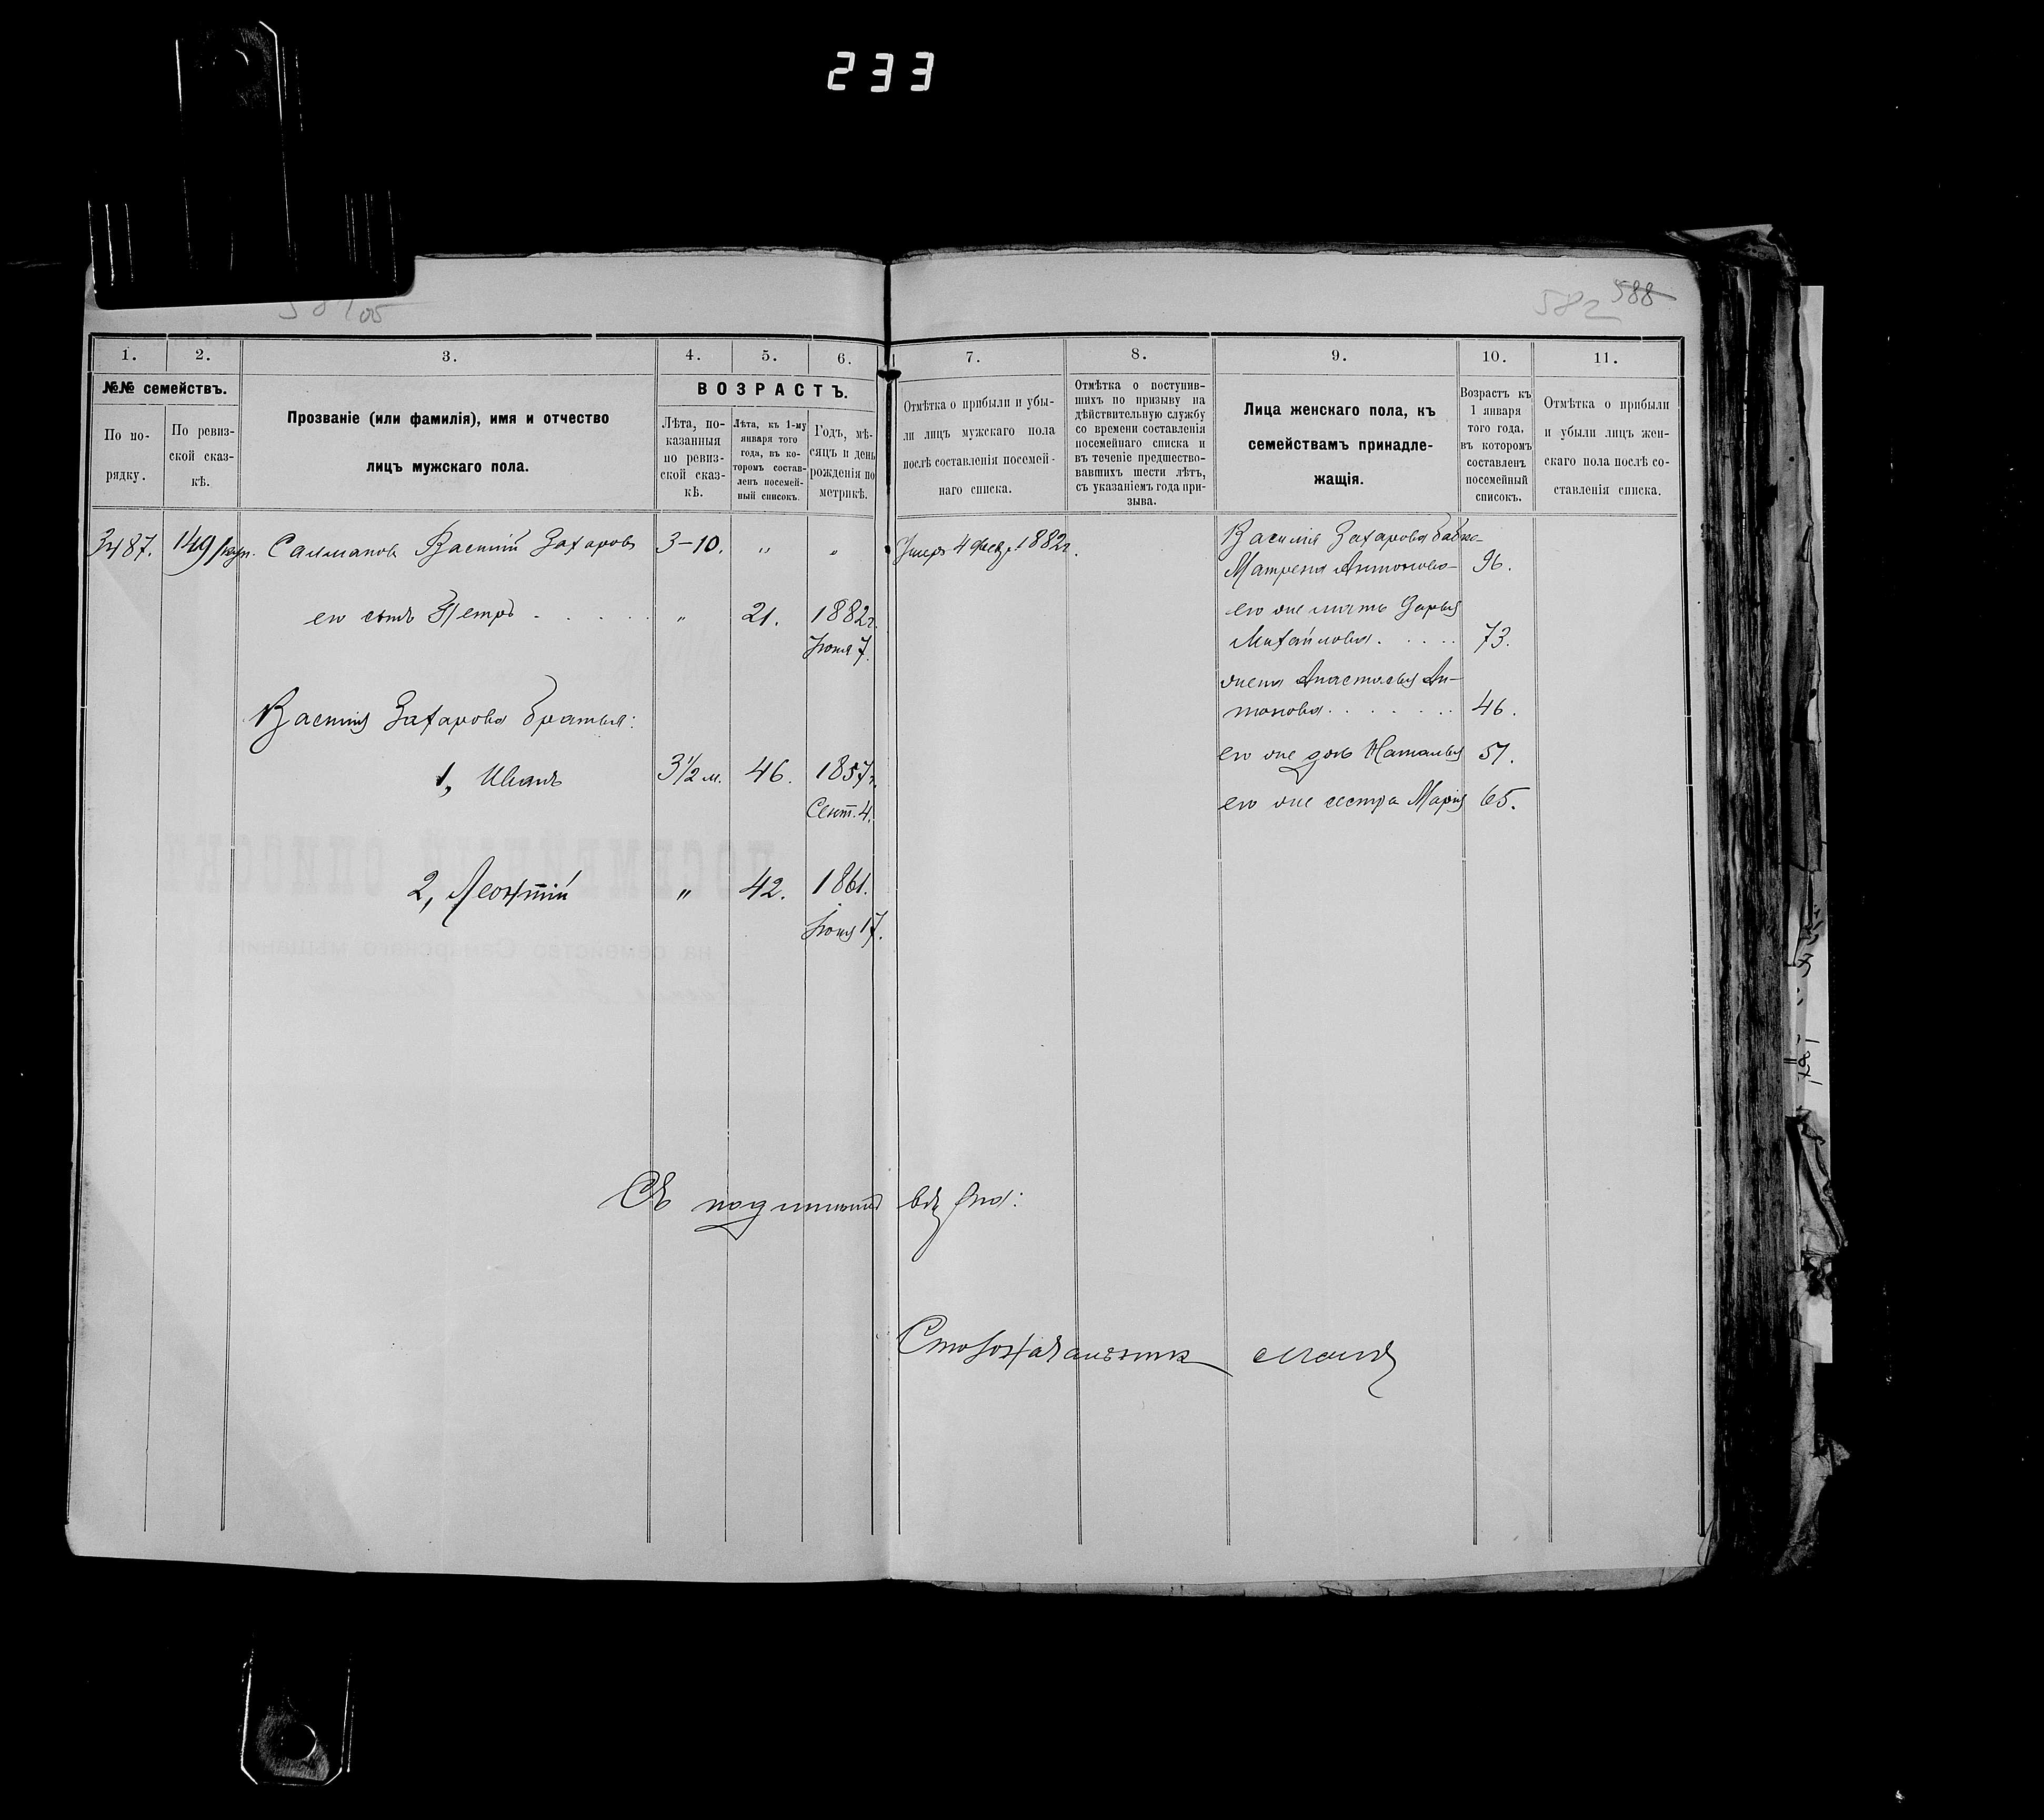 233
582 588
1. 2. 3. 4. 5. 6. 7. 8. 9. 10. 11.
№№ семействъ.
По по-
рядку.
По ревиз-
ской сказ-
кѣ.
Прозваніе (или фамилія), имя и отчество
лицъ мужскаго пола.
ВОЗРАСТЪ.
Лѣта, по-
казанныя
по ревиз-
ской сказ-
кѣ.
Лѣта, къ 1-му
января того
года, въ ко-
торомъ состав-
ленъ посемей-
ный списокъ.
Годъ, мѣ-
сяцъ и день
рожденія по
метрикѣ.
Отмѣтка о прибыли и убы-
ли лицъ мужскаго пола
послѣ составленія посемей-
наго списка.
Отмѣтка о поступив-
шихъ по призыву на
дѣйствительную службу
со времени составленія
посемейнаго списка и
въ теченіе предшество-
вавшихъ шести лѣтъ,
съ указаніемъ года при-
зыва.
Лица женскаго пола, къ
семействамъ принадле-
жащія.
Возрастъ къ
1 января
того года,
въ которомъ
составленъ
посемейный
списокъ.
Отмѣтка о прибыли
и убыли лицъ жен-
скаго пола послѣ со-
ставленія списка.
3487. 149 купч. Салмановъ Василій Захаровъ 3-10. " " Умеръ 4 февр. 1882г.
его сынъ Петръ . . . . . " 21. 1882г.
Іюня 7.
Василія Захарова братья:
1, Иванъ 3½ м. 46. 1857г.
Сент. 4.
2, Леонтій " 42. 1861.
Іюня 17.
Василія Захарова бабка
Матрена Антонова 96.
его же мать Дарья
Михайлова . . . . 73.
жена Анастасья Ан-
тонова . . . . . . . 46.
его же дочь Наталья 51.
его же сестра Марія 65.
Съ подлиннымъ вѣрно:
Столоначальникъ